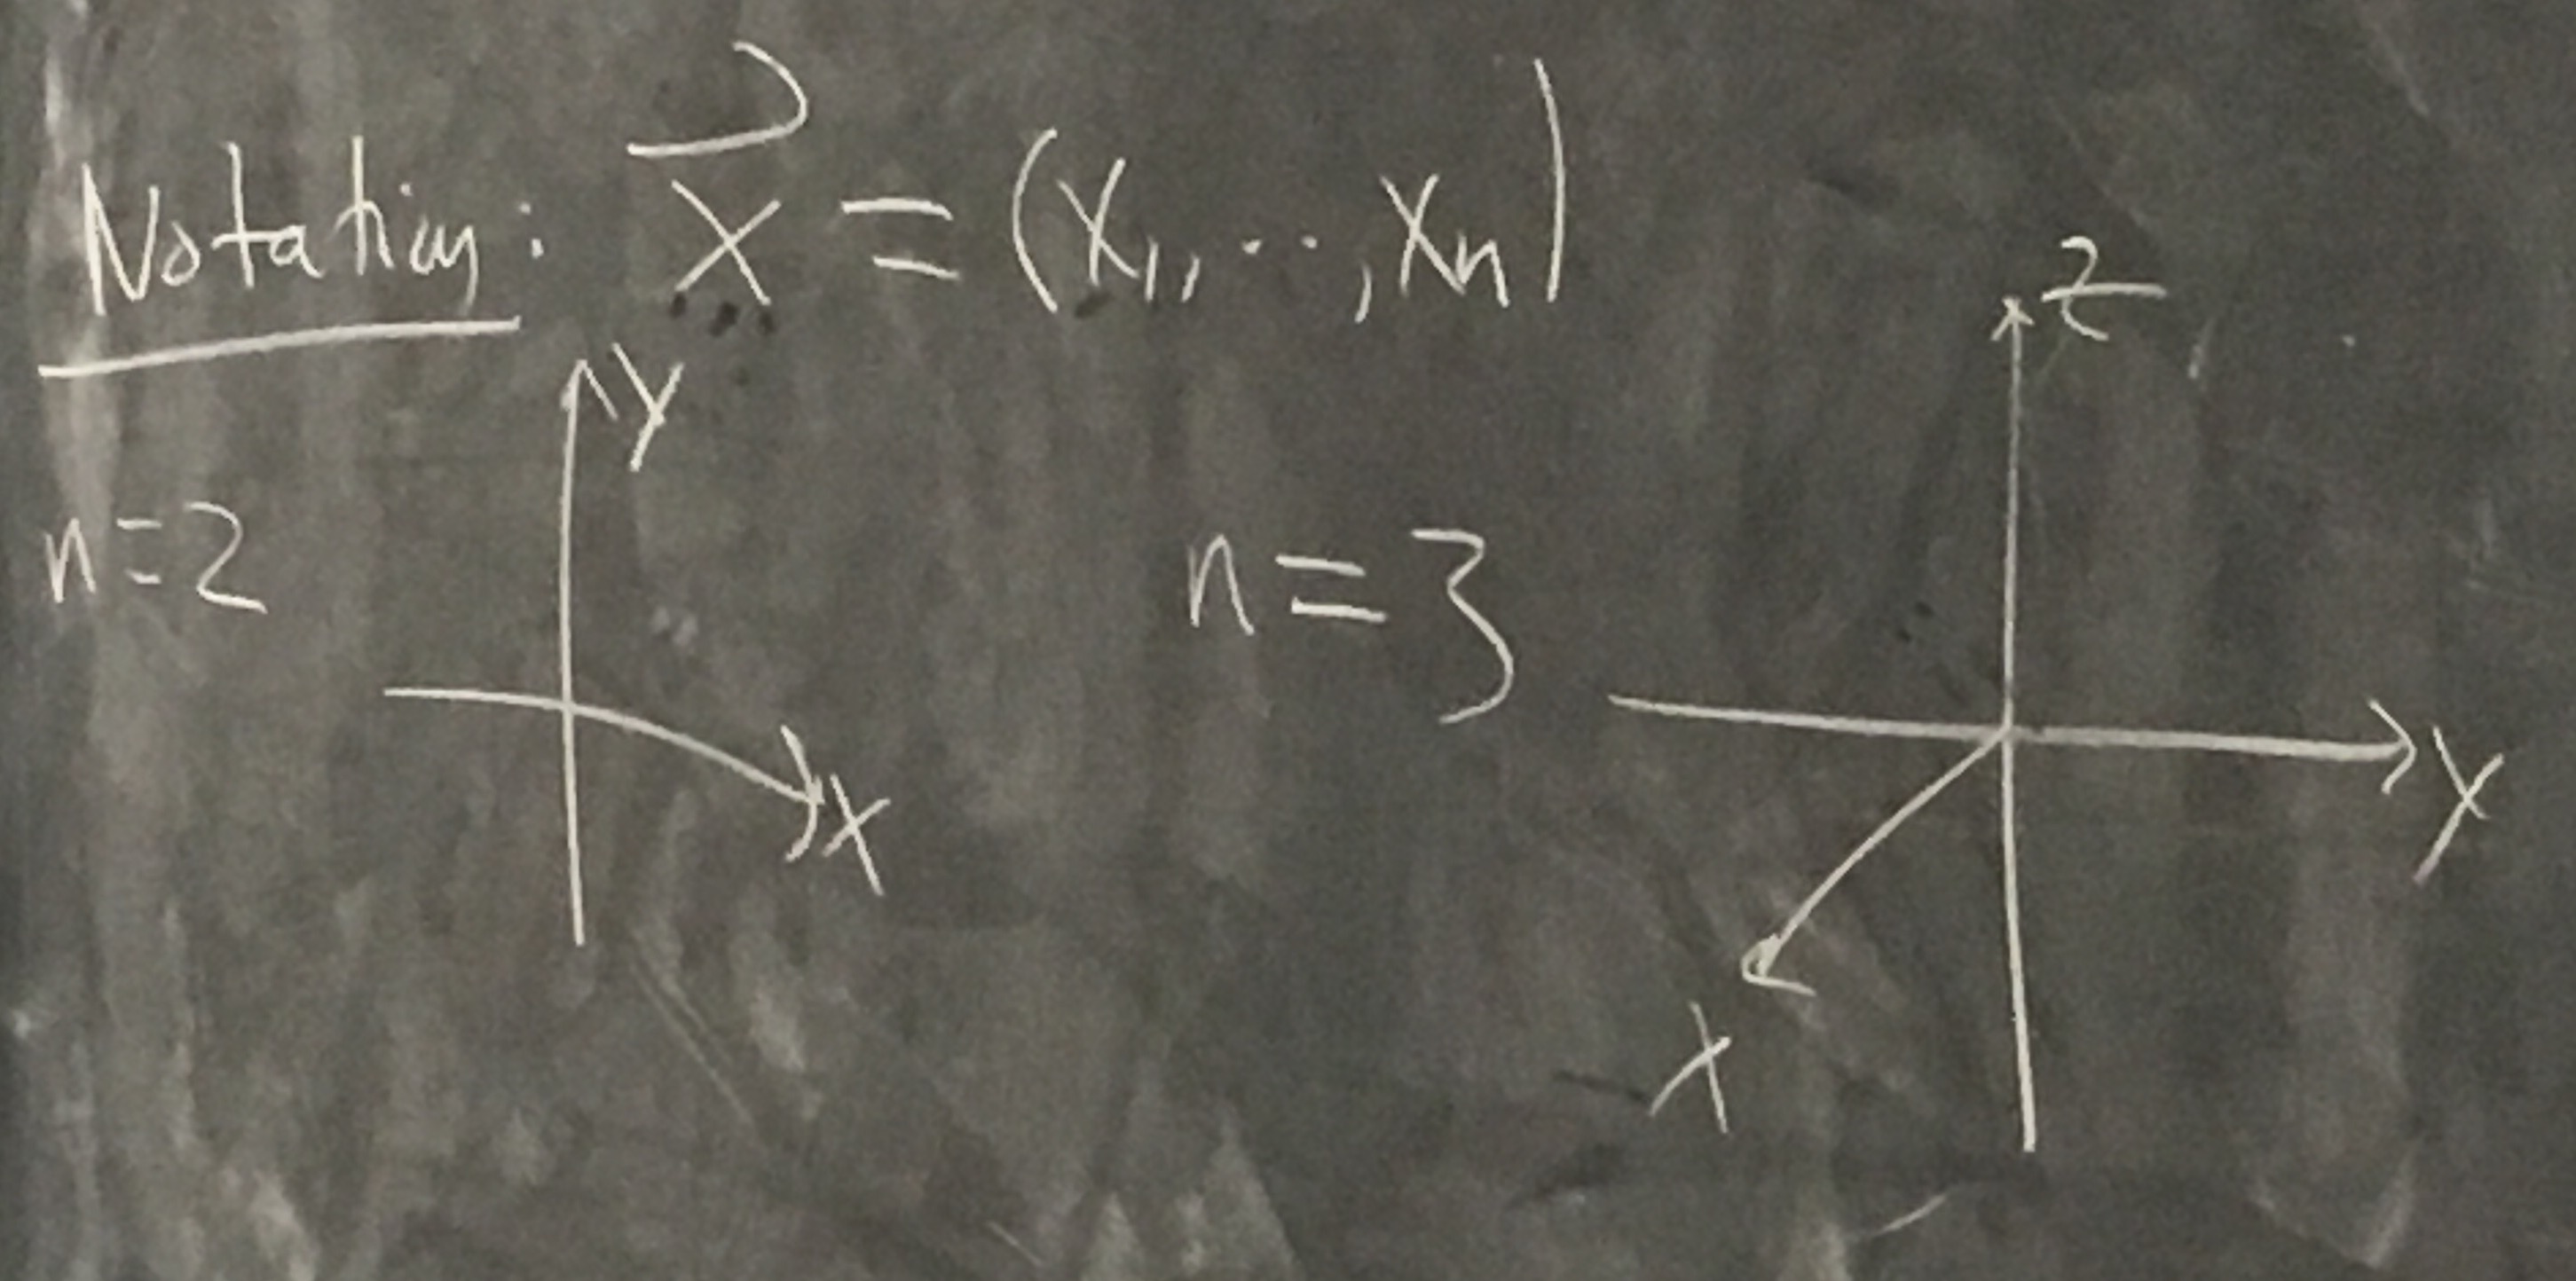 Notation: x⃗ = (x₁, ..., xₙ)
n=2
y
x
n=3
z
y
x